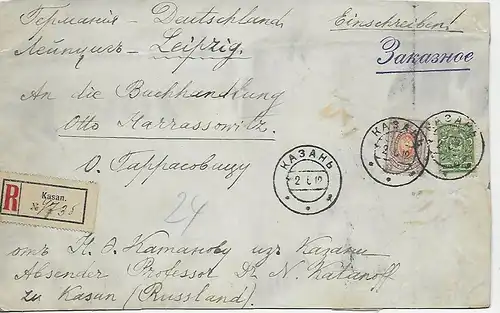 Германія – Deutschland Einschreiben!
Лейпцигъ – Leipzig. Заказное
An die Buchhandlung
Otto Harrassowitz.
О. Гаррасовицу
КАЗАНЬ
КАЗАНЬ
КАЗАНЬ
2 6 12
R Kasan.
№
24
отъ Н. Ѳ. Катанова изъ Казани
Absender Professor Dr N. Katanoff
zu Kasan (Russland)